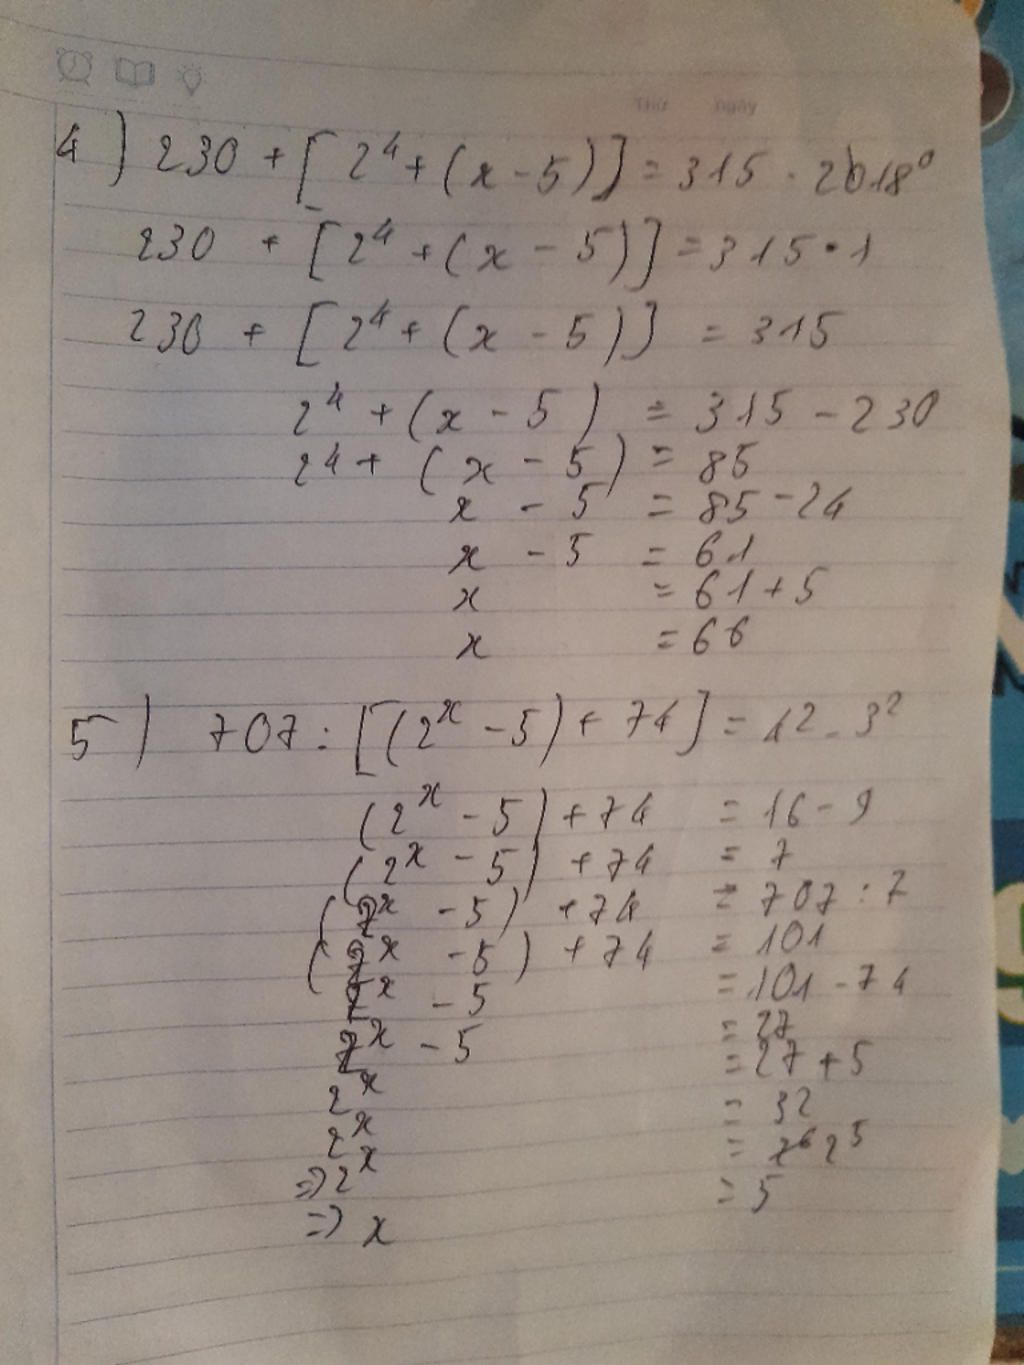 Thứ ngày
4) 230 + [2⁴ + (x - 5)] = 315 . 2018⁰
230 + [2⁴ + (x - 5)] = 315 . 1
230 + [2⁴ + (x - 5)] = 315
2⁴ + (x - 5) = 315 - 230
24 + (x - 5) = 85
x - 5 = 85 - 24
x - 5 = 61
x = 61 + 5
x = 66
5) 707 : [(2ˣ - 5) + 74] = 1² - 3²
(2ˣ - 5) + 74 = 16 - 9
(2ˣ - 5) + 74 = 7
(2ˣ - 5) + 74 = 707 : 7
(2ˣ - 5) + 74 = 101
2ˣ - 5 = 101 - 74
2ˣ - 5 = 27
2ˣ = 27 + 5
2ˣ = 32
=> 2ˣ = 2⁵
=> x = 5